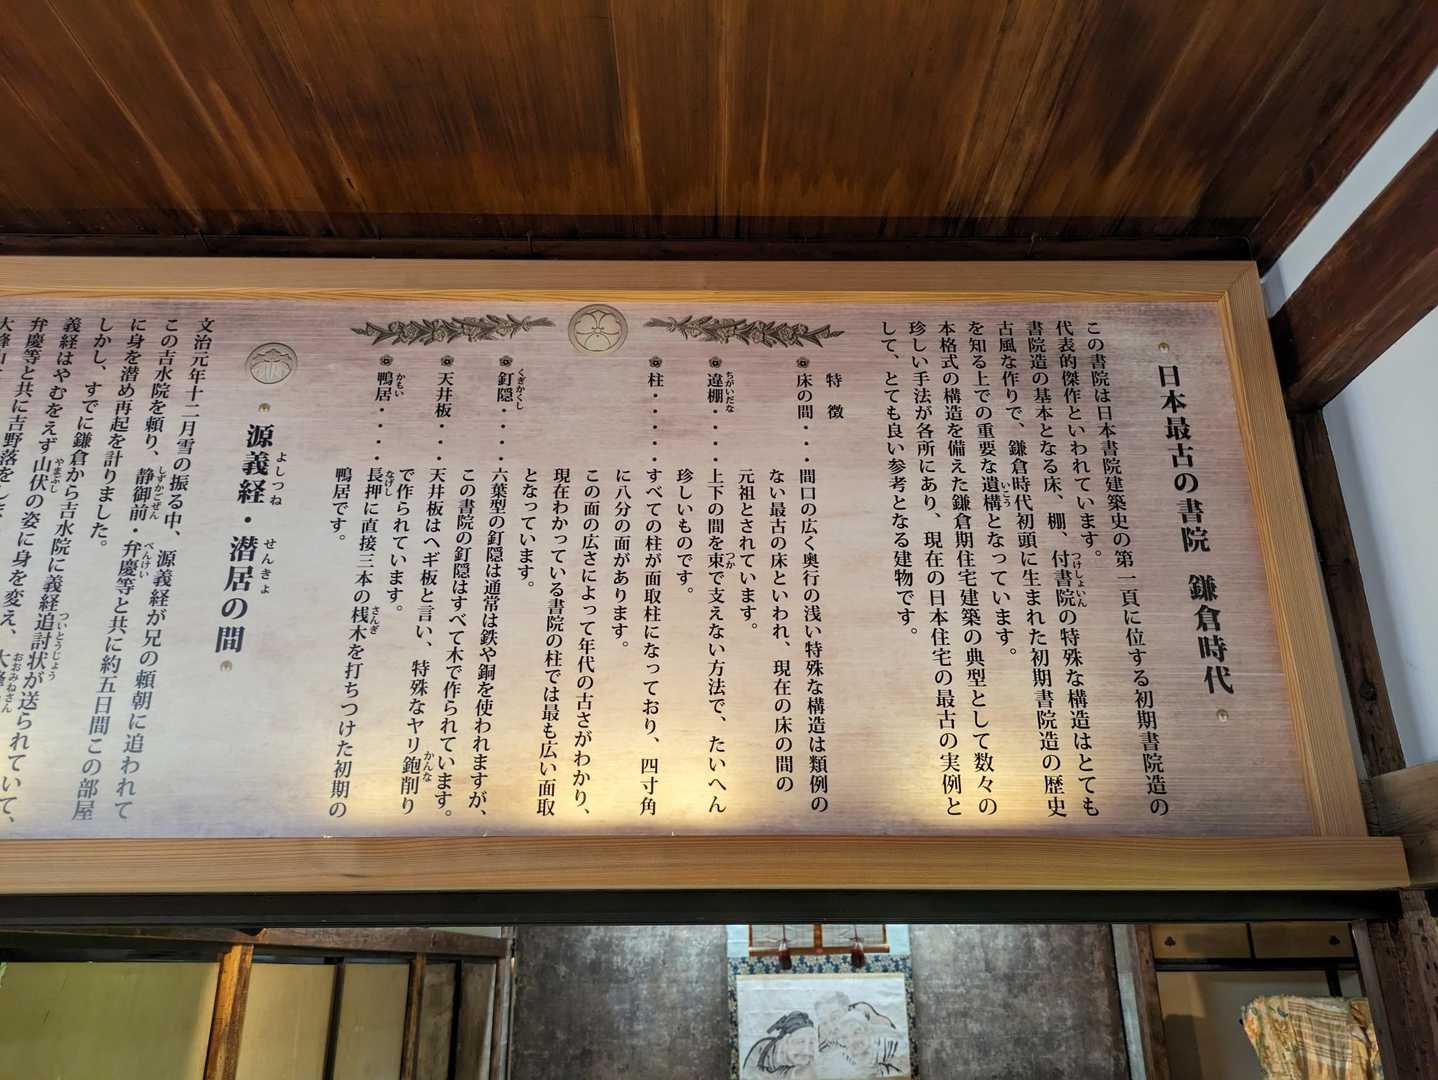 日本最古の書院 鎌倉時代
この書院は日本書院建築史の第一頁に位する初期書院造の
代表的傑作といわれています。
書院造の基本となる床、棚、付書院の特殊な構造はとても
つけしょいん
古風な作りで、鎌倉時代初頭に生まれた初期書院造の歴史
を知る上での重要な遺構となっています。
いこう
本格式の構造を備えた鎌倉期住宅建築の典型として数々の
珍しい手法が各所にあり、現在の日本住宅の最古の実例と
して、とても良い参考となる建物です。
特徴
床の間・・・間口の広く奥行の浅い特殊な構造は類例の
ない最古の床といわれ、現在の床の間の
元祖とされています。
違棚・・・・上下の間を束で支えない方法で、たいへん
ちがいだな
つか
珍しいものです。
柱・・・・・すべての柱が面取柱になっており、四寸角
に八分の面があります。
この面の広さによって年代の古さがわかり、
現在わかっている書院の柱では最も広い面取
となっています。
釘隠・・・・六葉型の釘隠は通常は鉄や銅を使われますが、
くぎかくし
この書院の釘隠はすべて木で作られています。
天井板・・・天井板はヘギ板と言い、特殊なヤリ鉋削り
かんな
で作られています。
鴨居・・・・長押に直接三本の桟木を打ちつけた初期の
かもい
なげし
さんぎ
鴨居です。
源義経・潜居の間
よしつね
せんきょ
文治元年十二月雪の振る中、源義経が兄の頼朝に追われて
この吉水院を頼り、静御前・弁慶等と共に約五日間この部屋
しずかごぜん
べんけい
に身を潜め再起を計りました。
しかし、すでに鎌倉から吉水院に義経追討状が送られていて、
ついとうじょう
義経はやむをえず山伏の姿に身を変え、大峰
やまぶし
おおみねさん
弁慶等と共に吉野落をし
大峰山